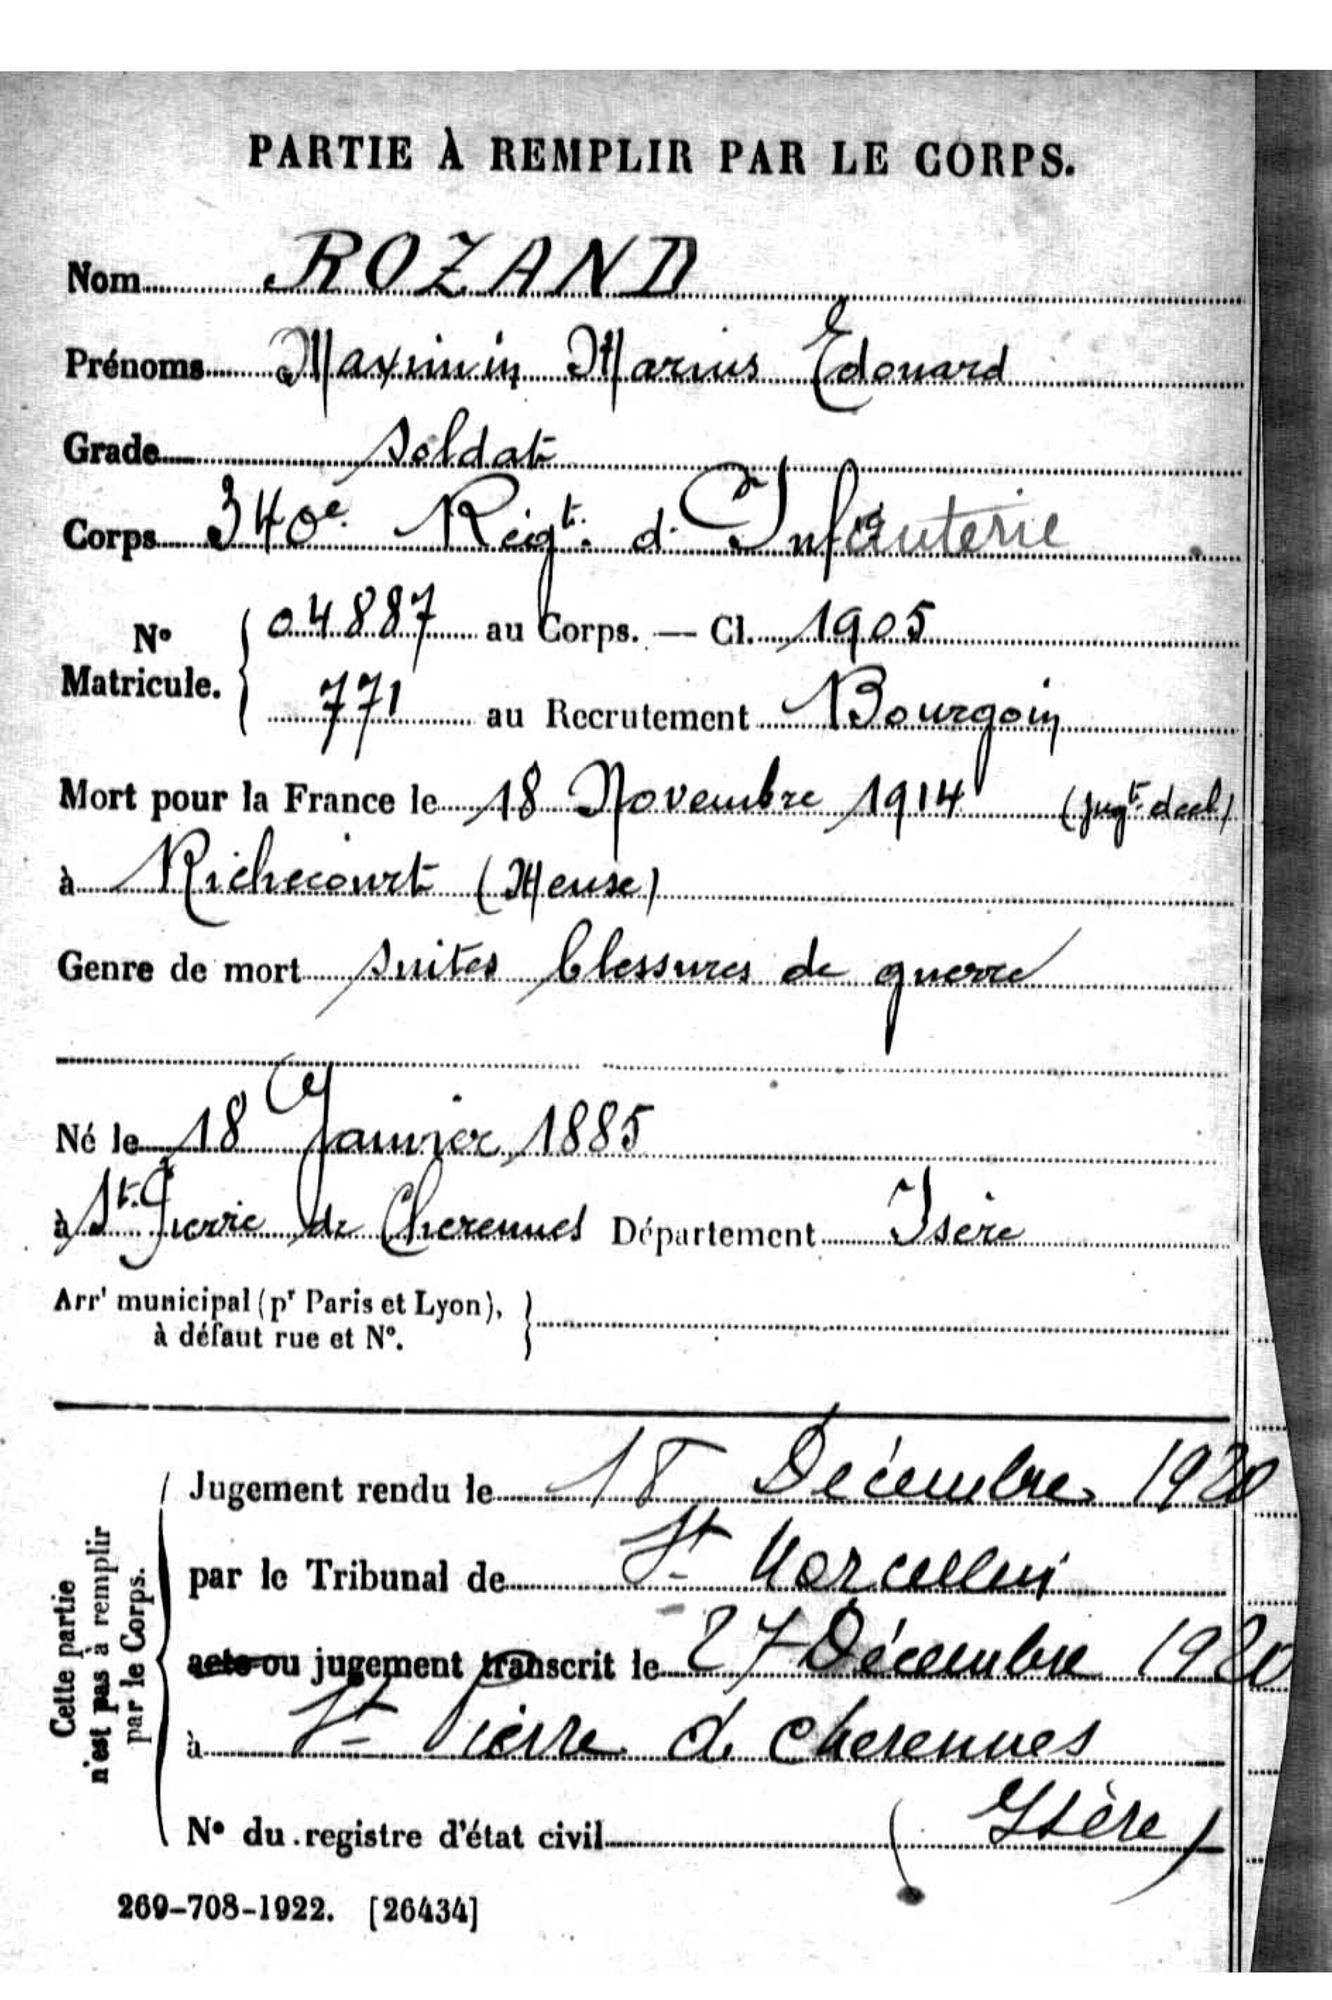 PARTIE À REMPLIR PAR LE CORPS.
Nom ROZAND
Prénoms Maximin Marius Edouard
Grade soldat
Corps 340e Régt. d'Infanterie
No Matricule. { 04887 au Corps. — Cl. 1905
771 au Recrutement Bourgoin
Mort pour la France le 18 Novembre 1914 (jugt. decl)
à Richecourt (Meuse)
Genre de mort suites blessures de guerre
Né le 18 Janvier 1885
à St. Pierre de Cherennes Département Isère
Arrt municipal (pr Paris et Lyon), }
à défaut rue et No.
Cette partie
n'est pas à remplir
par le Corps.
Jugement rendu le 18 Décembre 1920
par le Tribunal de St Marcellin
acte ou jugement transcrit le 27 Décembre 1920
à St Pierre de Cherennes
No du registre d'état civil (Isère)
269-708-1922. [26434]